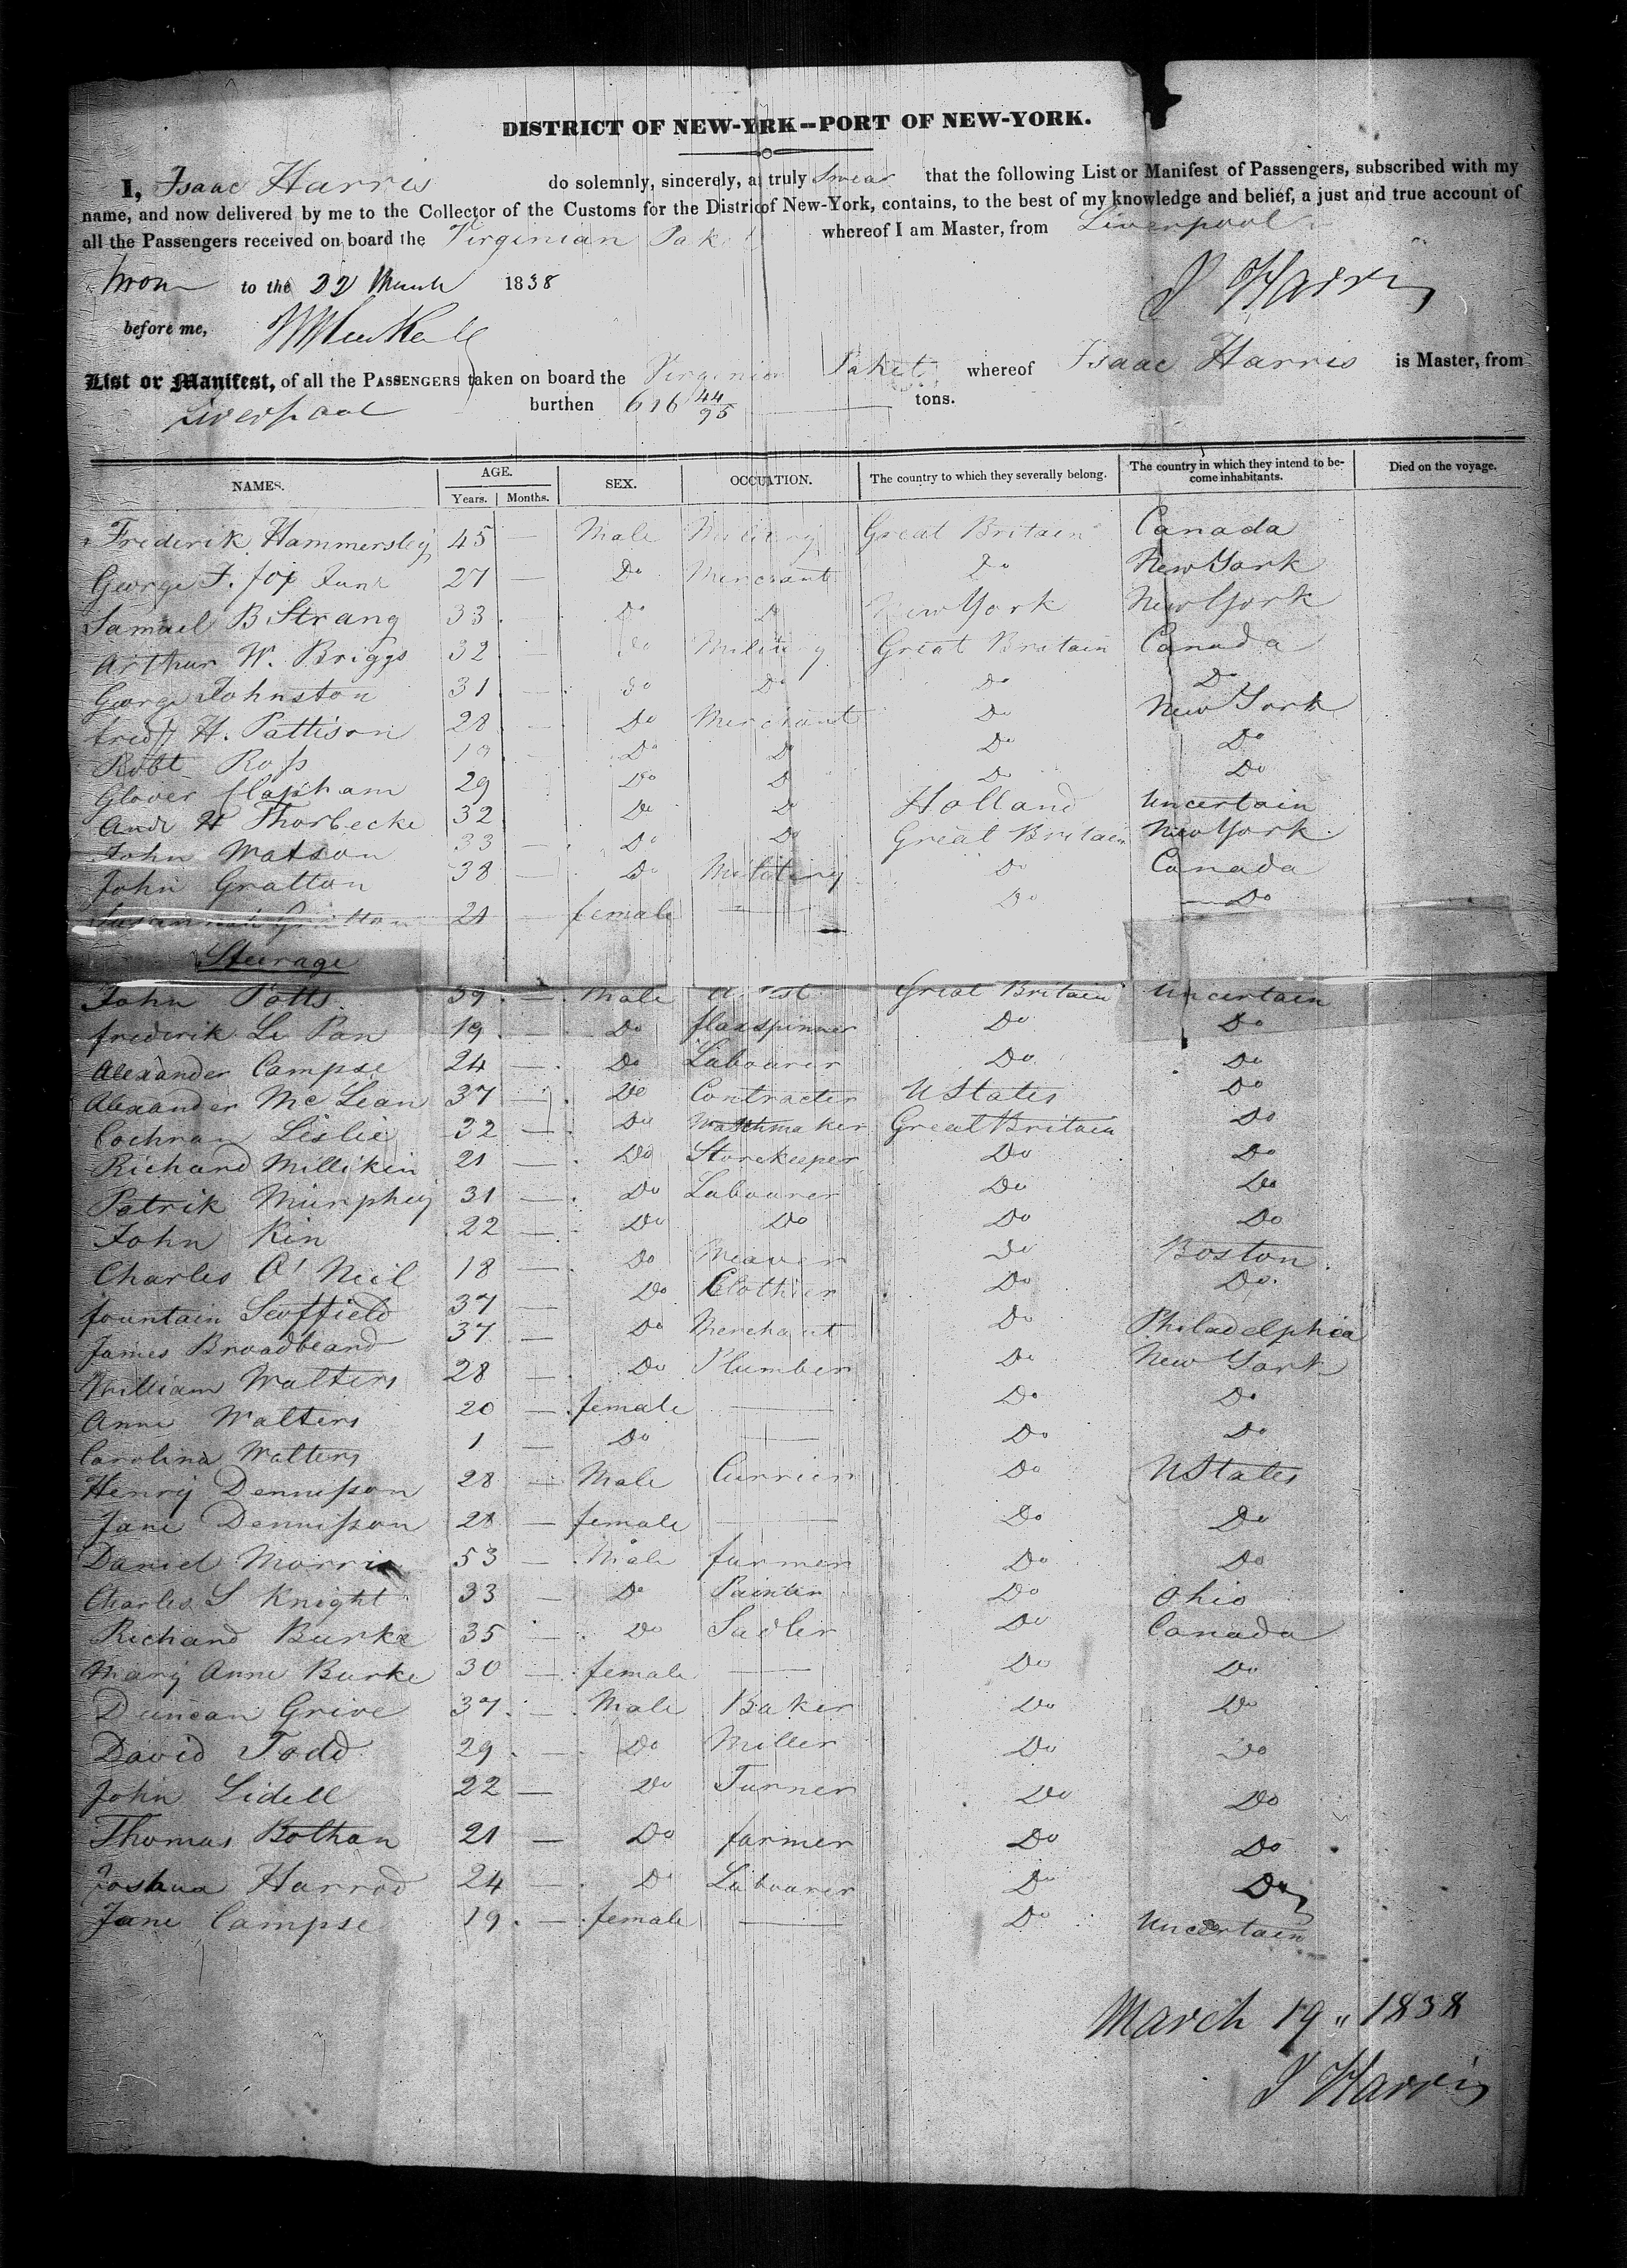 DISTRICT OF NEW-YRK--PORT OF NEW-YORK.
I, Isaac Harris do solemnly, sincerely, a truly Swear that the following List or Manifest of Passengers, subscribed with my
name, and now delivered by me to the Collector of the Customs for the Distric of New-York, contains, to the best of my knowledge and belief, a just and true account of
all the Passengers received on board the Virginian Paket whereof I am Master, from Liverpool
Sworn to the 22 March 1838 I Harris
before me,
List or Manifest, of all the PASSENGERS taken on board the Virginian Paket whereof Isaac Harris is Master, from
Liverpool burthen 616 44/95 tons.
NAMES. AGE. Years. Months. SEX. OCCUATION. The country to which they severally belong. The country in which they intend to become inhabitants. Died on the voyage.
Frederik Hammersley 45 — Male Military Great Britain Canada
George F. Fox Junr 27 — Do Merchant Do New York
Samuel B Strang 33 Do D New York New York
Arthur W. Briggs 32 — Do Military Great Britain Canada
George Johnston 31 — Do Do Do Do
Fredk H. Pattison 28 — Do Merchant Do New York
Robt Ross 19 Do D Do Do
Glover Clapham 29 Do D Do Do
Andr H Thorbecke 32 Do Do Holland Uncertain
John Watson 33 — Do Do Great Britain New York
John Gratton 38 — Do Military Do Canada
Susannah Gratton 21 — female — Do Do
Steerage
John Potts 39 — Male Great Britain Uncertain
frederik Le Pan 19 — Do flaxspinner Do Do
Alexander Campse 24 — Do Labourer Do Do
Alexander McLean 37 — Do Contracter U States Do
Cochran Leslie 32 — Do Watchmaker Great Britain Do
Richard Millikin 21 — Do Storekeeper Do Do
Patrik Murphey 31 — Do Labourer Do Do
John Kin 22 — Do Do Do Do
Charles O'Neil 18 — Do Weaver Do Boston
fountain Scoffield 37 — Do Clothier Do Do
James Broadbeard 37 — Do Merchant Do Philadelphia
William Walters 28 — Do Plumber Do New York
Anne Walters 20 — female — Do Do
Carolina Walters 1 — Do — Do Do
Henry Dennisson 28 — Male Currier Do U States
Jane Dennisson 21 — female — Do Do
Daniel Morris 53 — Male farmer Do Do
Charles S Knight 33 — Do Painter Do Ohio
Richard Burke 35 — Do Sadler Do Canada
Mary Anne Burke 30 — female — Do Do
Duncan Grive 37 — Male Baker Do Do
David Todd 29 — Do Miller Do Do
John Lidell 22 — Do Turner Do Do
Thomas Bothan 21 — Do farmer Do Do
Joshua Harrod 24 — Do Labourer Do Do
Jane Campse 19 — female — Do Uncertain
March 19" 1838
I Harris